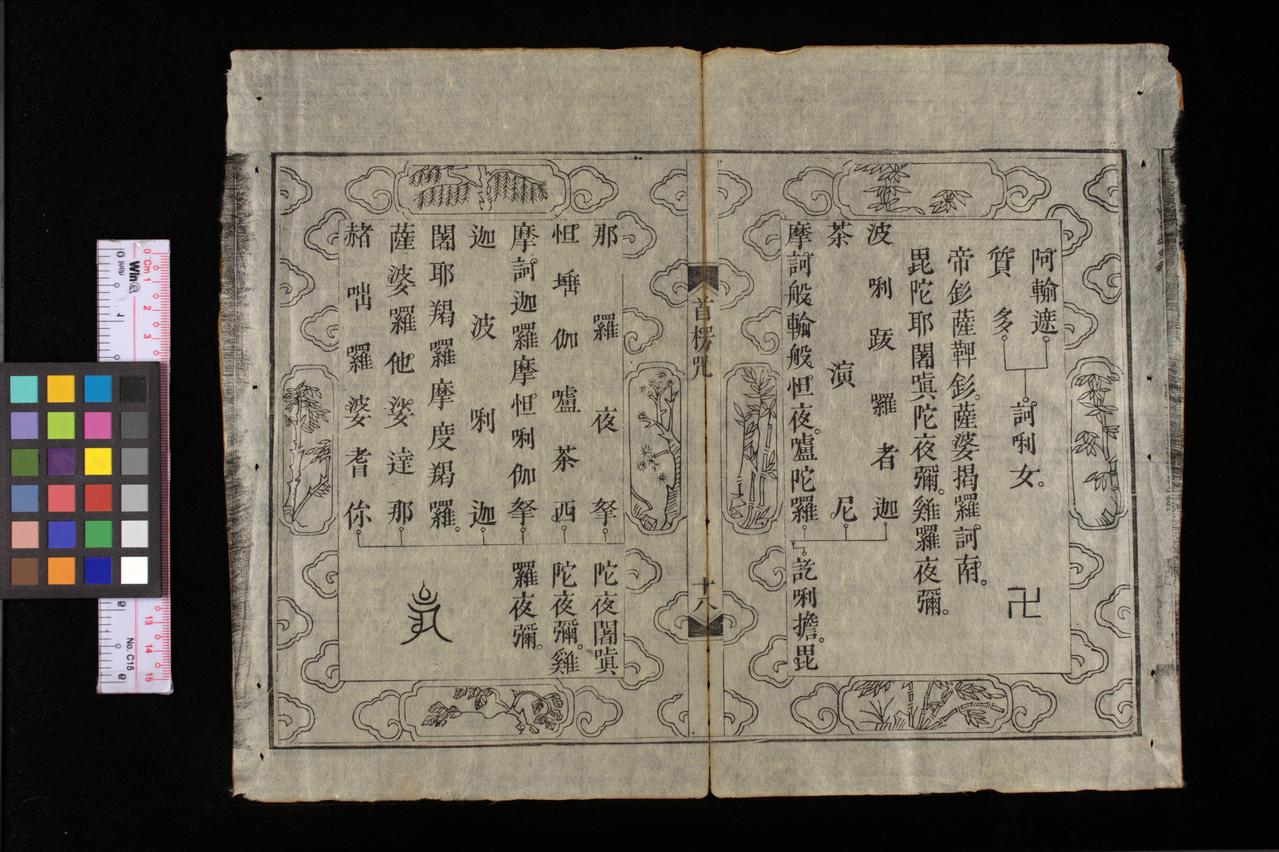 阿輸遮
質多
訶唎女。
卍
帝釤薩鞞釤。薩婆揭羅訶南。
毘陀耶闍嗔陀夜彌。雞羅夜彌。
波唎跋羅者迦
茶演尼
摩訶般輸般怛夜。嚧陀羅
訖唎擔。毘
首楞咒
十八
那羅夜拏
怛埵伽嚧茶西
摩訶迦羅摩怛唎伽拏
迦波唎迦
闍耶羯羅摩度羯羅。
薩婆羅他娑達那
赭咄羅婆耆你
陀夜闍嗔
陀夜彌。雞
羅夜彌。
0 Cm 1 2 3
13 14 15
No. C15